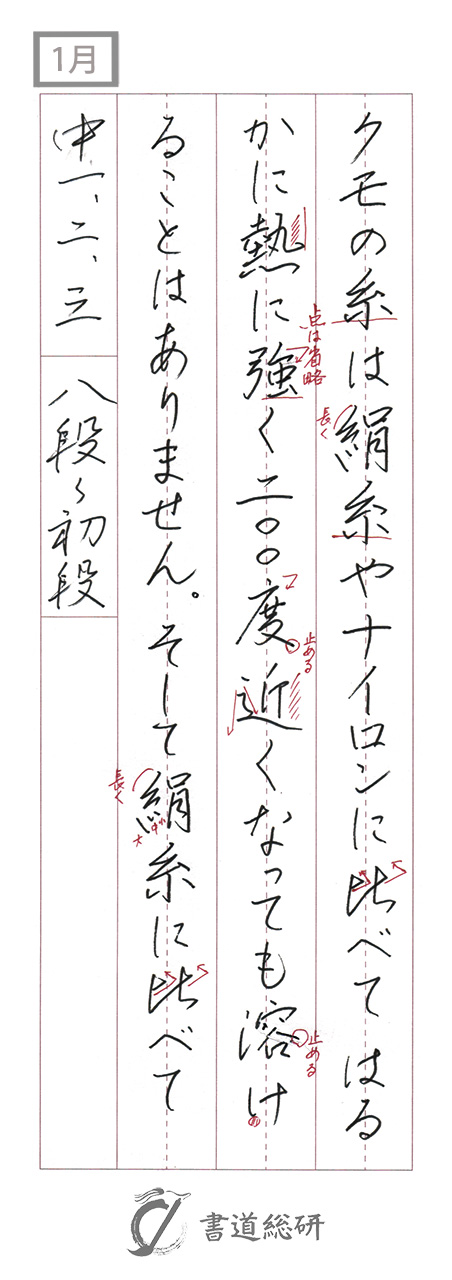 1月
クモの糸は絹糸やナイロンに比べてはる
かに熱に強く二〇〇度近くなっても溶け
ることはありません。そして絹糸に比べて
中一、二、三
八段〜初段
点は省略
長く
止める
止める
長く
書道総研